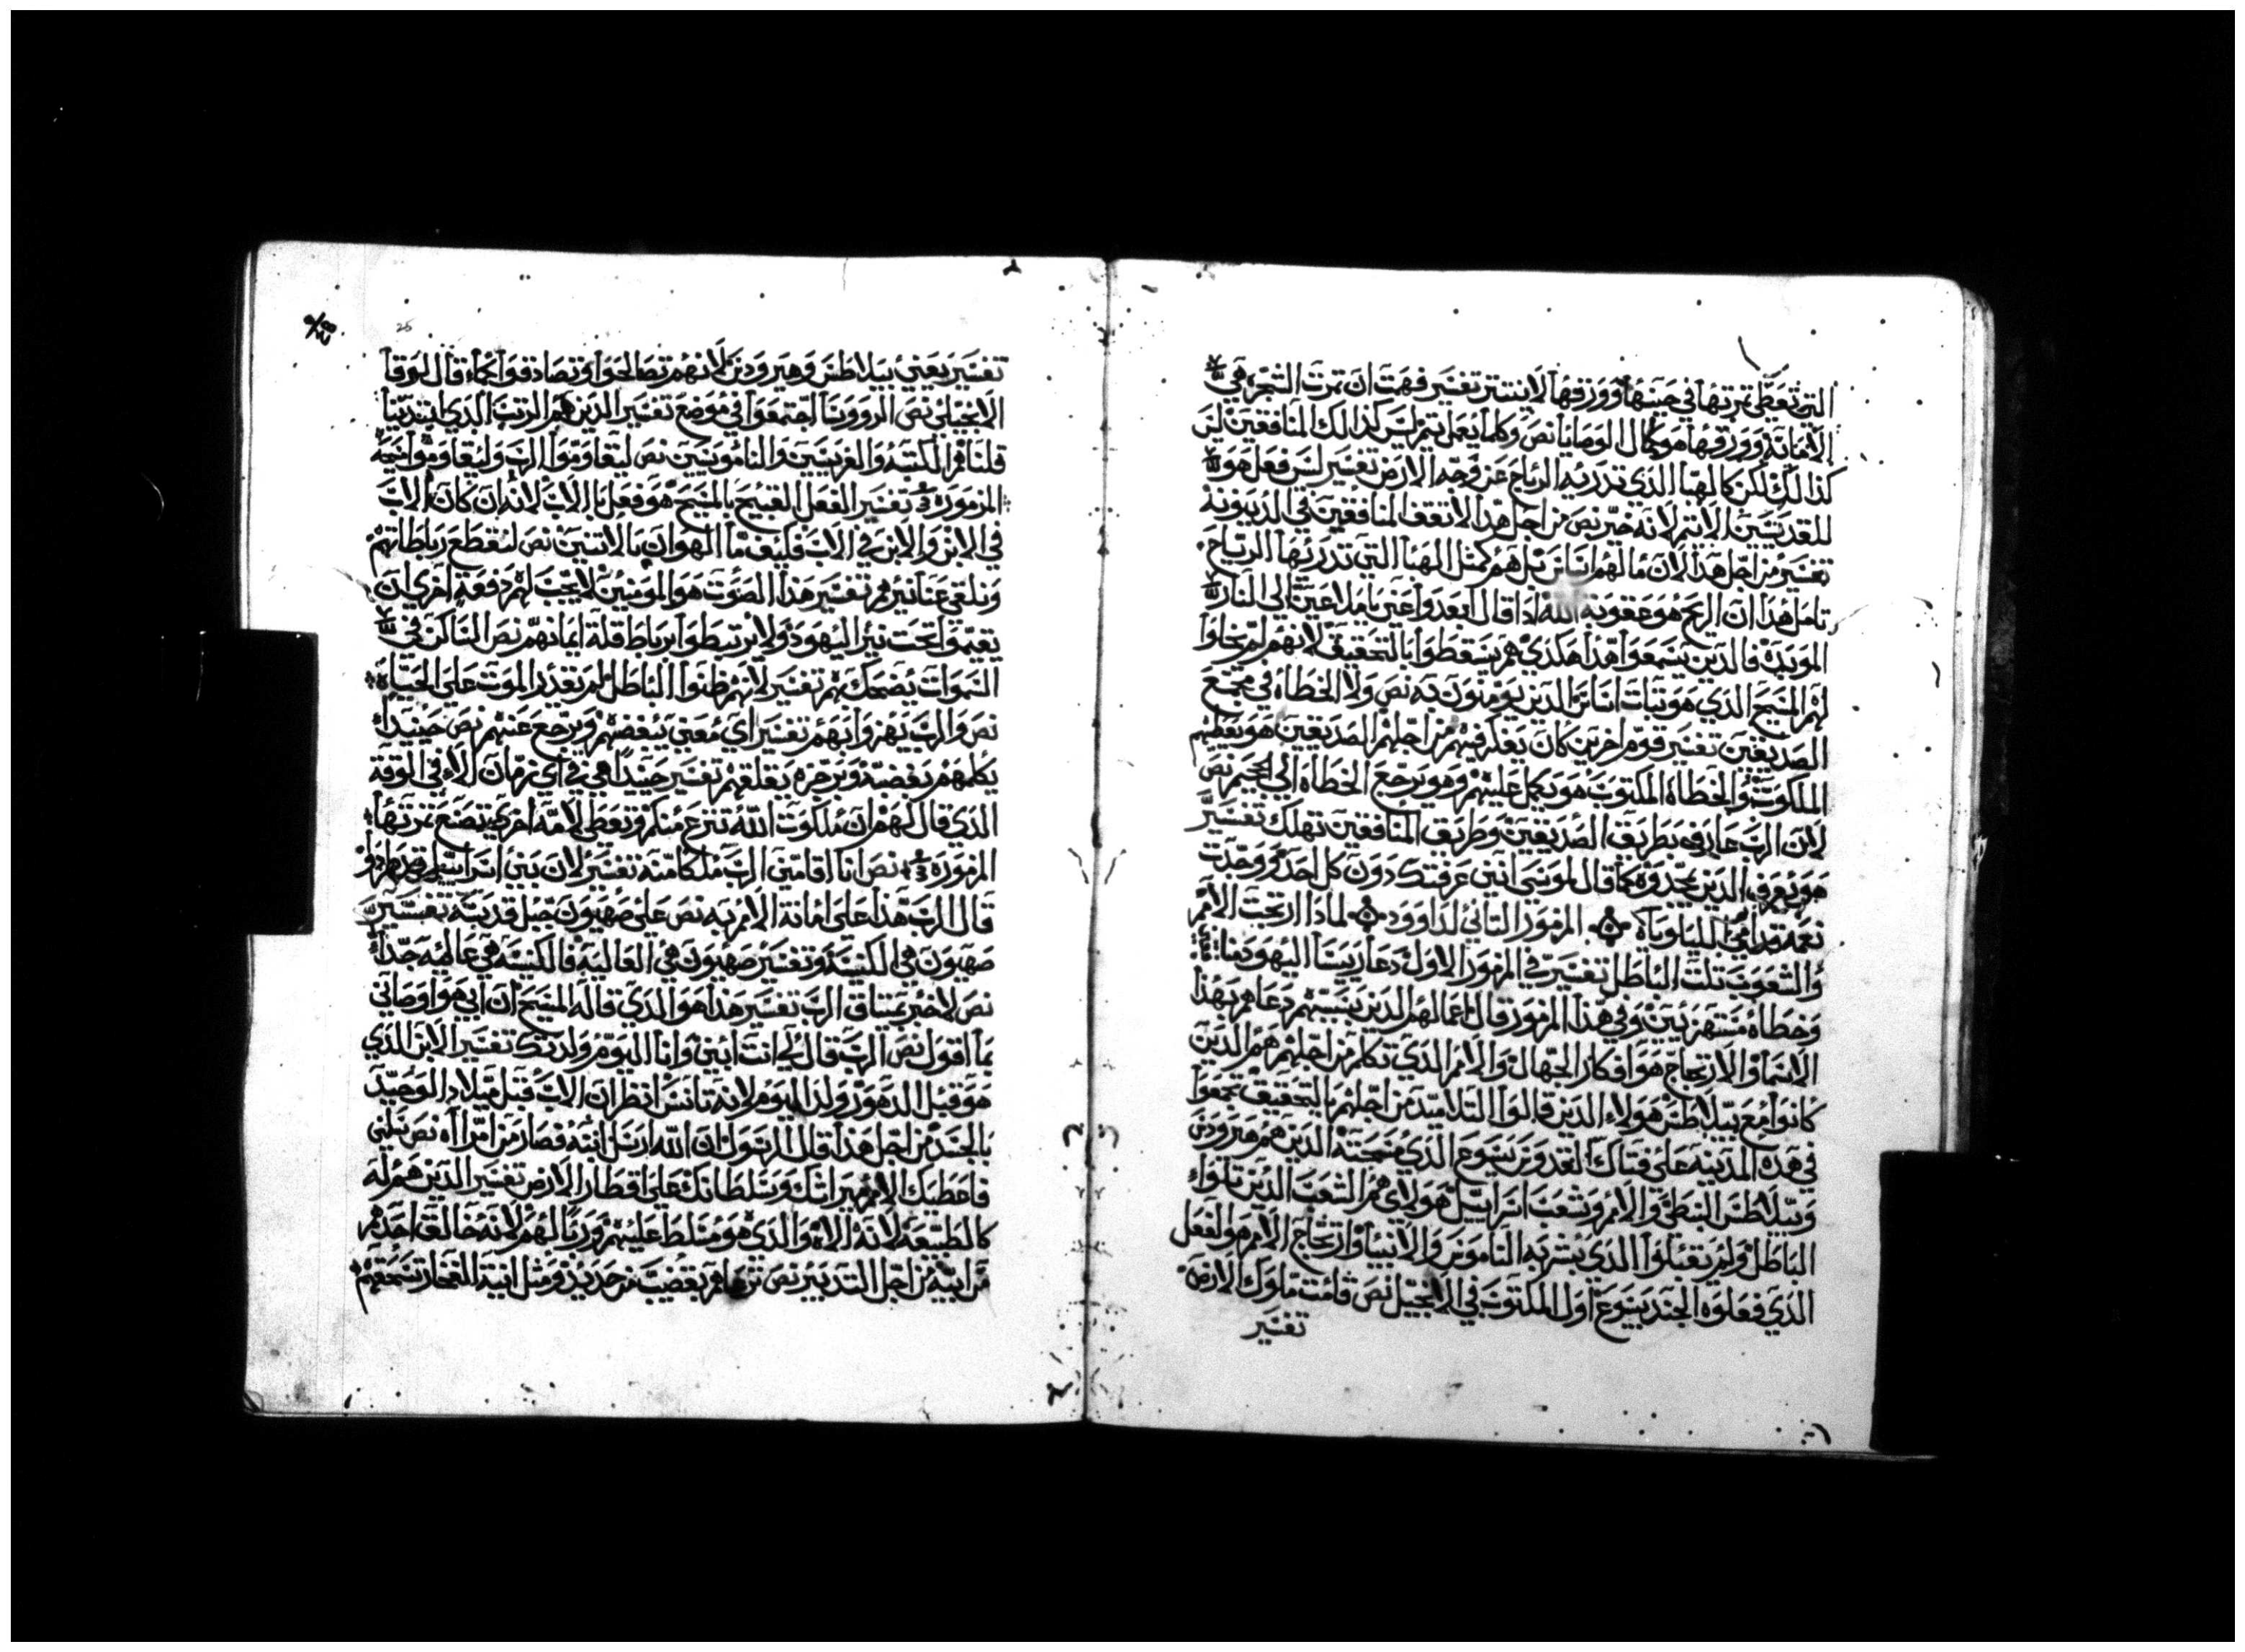 التي تعطي ثمرتها في حينها وورقها لا ينتتر تفسير فهمت ان ثمرت الشجره هي
الامانه وورقها هو كمال الوصايا نص وكلما يعمل يتم ليس كذالك المنافقين ليس
كذالك لكن كالهبا الذي تدريه الرياح عن وجه الارض تفسير ليس فعل هو
للقديسين الاتم لانه خير نص من اجل هذا لا تقف المنافقين في الدينونه
تفسير من اجل هذا الان ما لهم اساس بل هم كمثل الهبا التي تدريها الرياح
تامل هذا ان الريح هو عقوبة الله اذا قال ابعدوا عني يا ملاعين الي النار
الموبده فالذين يسمعوا هذا هكذي هم يسقطوا بالتحقيق لانهم لم يخلوا
لهم المسيح الذي هو تبات اساس الذين يومنون به نص ولا الخطاه في مجمع
الصديقين تفسير قوم اخرين كان يفكر فيهم من اجلهم الصديقين هو يعطيهم
الملكوت والخطاه المكتوب هو يكمل عليهم وهو يرجع الخطاه الي الجحيم نص
لان الرب عارف بطريق الصديقين وطريق المنافقين تهلك تفسير
هو يعرف الذين يجدوه كما قال لموسي انني عرفتك دون كل احد ووجدت
نعمه قدامي الليلوياه المزمور التاني لداوود لماذا ارتجت الامم
والشعوب تلت الباطل تفسير في المزمور الاول دعا ريسا اليهود نفاق
وخطاه مستهزيين وفي هذا المزمور قال اعمالهم الذين بسببهم دعاهم بهذا
الاسما والارتجاج هو افكار الجهال والامم الذي تكلم من اجلهم هم الذين
كانوا مع بيلاطس هولاء الذين قالوا التلاميد من اجلهم بالتحقيق تجمعوا
في هذه المدينه علي فتاك القدوس يسوع الذي مسحته الذين هم هيرودس
وبيلاطس النبطي والامم وشعب اسراييل هولاي هم الشعب الذين تلوا
الباطل ولم يقبلوا الذي بشر به الناموس والانبيا وارتجاج الامم هو الفعل
الذي فعلوه الجند بيسوع اول المكتوب في الانجيل نص قامت ملوك الارض
تفسير
25
تفسير يعني بيلاطس وهيرودس لانهم تصالحوا وتصادقوا كما قال لوقا
الانجيلي نص الروونسا اجتمعوا في موضع تفسير الذين هم الرب الذي ابتديا
قلنا هم الكتبه والفريسيين والناموسيين نص ليقاوموا الرب وليقاوموا مسيحه
المزمور تفسير الفعل القبيح بالمسيح هو فعل بالاب لانه ان كان الاب
في الابن والابن في الاب فكيف ما الهوان بالاتنين نص لنقطع رباطاتهم
ونلقي عنا نيرهم تفسير هذا الصوت هو المومنين لا يجب لهم دفعه اخري ان
يقيموا تحت نير اليهود ولا يرتبطوا برباط قلة ايمانهم نص الساكن في
السموات يضحك بهم تفسير لانهم ظنوا الباطل لم تقدر الموت علي الحياه
نص والرب يهزوا بهم تفسير اي معني يبغضهم ويرجع عنهم نص حينيدا
يكلمهم بغضبه وبرجزه يقلقهم تفسير حينيدا هي في اي زمان الا في الوقة
الذي قال لهم ان ملكوت الله تنزع منكم وتعطي لامه اخري تصنع ثمرتها
المزمور نص انا اقامني الرب ملكا منه تفسير لان بني اسراييل
قال الرب هذا علي امانة الامم به نص علي صهيون جبل قدسه تفسير
صهيون هي الكنيسه وتفسير صهيون هي العاليه فالكنيسه هي عاليه جدا
نص لاخبر بمتياق الرب تفسير هذا هو الذي قاله المسيح ان ابي هو اوصاني
بما اقول نص الرب قال لي انت ابني وانا اليوم ولدتك تفسير الابن الذي
هو قبل الدهور ولد اليوم لانه تانس انظر ان الاب قبل ميلاد الوحيد
بالجسد من اجل هذا قال الرسول ان الله ارسل ابنه فصار من امراه نص سلني
فاعطيك الامم ميراتك وسلطانك علي اقطار الارض تفسير الذين هم له
كالطبيعه لانه الاه والذي هو متسلط عليهم وربا لهم لانه خالق اخدهم
من ابيه من اجل التدبير نص ترعاهم بقضيب من حديد ومثل انية الفخار تسحقهم